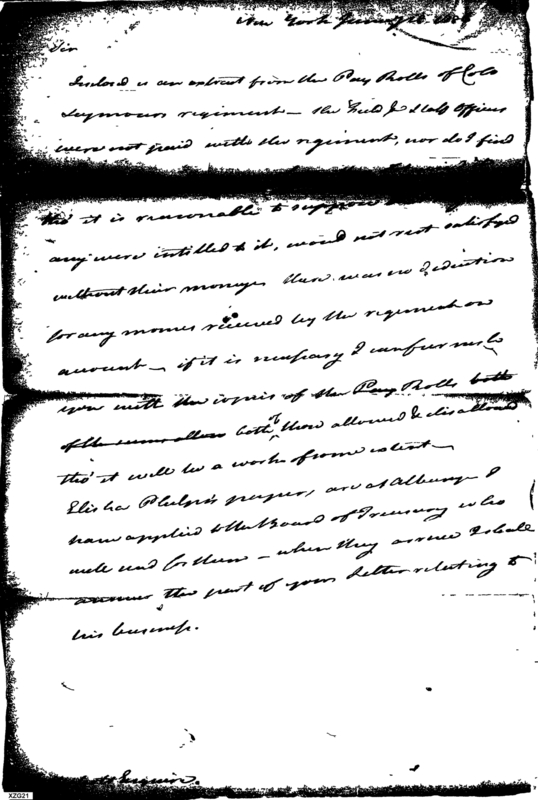 New York
Sir
Inclosed is an extract from the Pay Rolls of Colo
Seymours regiment — the Field & Staff Officers
were not paid with the regiment, nor do I find
tho' it is reasonable to suppose
any were intitled to it, would not rest satisfyed
without their moneys there was no deduction
for any monies received by the regiment on
account — if it is necessary I can furnish
you with the copies of the Pay Rolls both
of the both of those allowed & disallowed
tho' it will be a work of some extent —
Elisha Phelps's papers, are at Albany I
have applied to the Board of Treasury who
will send for them — when they arrive I shall
answer the part of your Letter relating to
his business.
Esquire.
XZG21